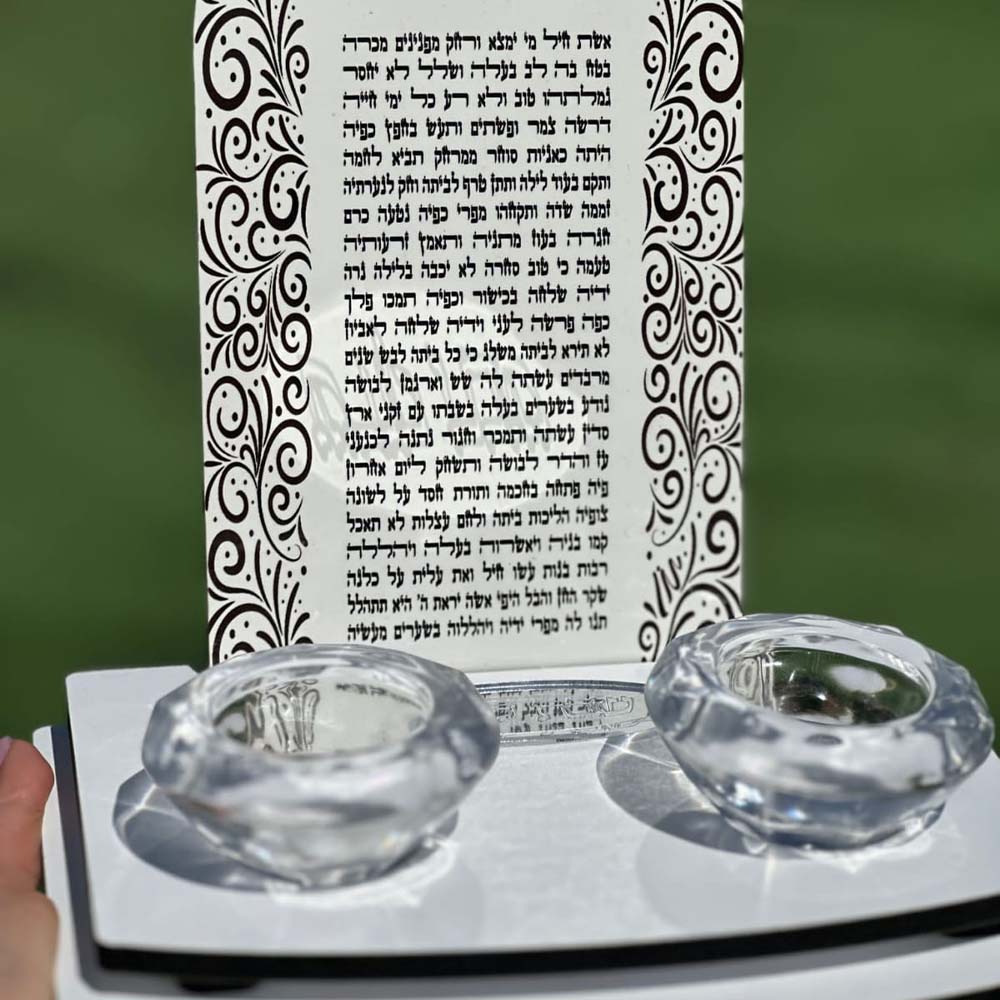 אשת חיל מי ימצא ורחק מפנינים מכרה
בטח בה לב בעלה ושלל לא יחסר
גמלתהו טוב ולא רע כל ימי חייה
דרשה צמר ופשתים ותעש בחפץ כפיה
היתה כאניות סוחר ממרחק תביא לחמה
ותקם בעוד לילה ותתן טרף לביתה וחק לנערתיה
זממה שדה ותקחהו מפרי כפיה נטעה כרם
חגרה בעוז מתניה ותאמץ זרעותיה
טעמה כי טוב סחרה לא יכבה בלילה נרה
ידיה שלחה בכישור וכפיה תמכו פלך
כפה פרשה לעני וידיה שלחה לאביון
לא תירא לביתה משלג כי כל ביתה לבש שנים
מרבדים עשתה לה שש וארגמן לבושה
נודע בשערים בעלה בשבתו עם זקני ארץ
סדין עשתה ותמכר וחגור נתנה לכנעני
עז והדר לבושה ותשחק ליום אחרון
פיה פתחה בחכמה ותורת חסד על לשונה
צופיה הליכות ביתה ולחם עצלות לא תאכל
קמו בניה ויאשרוה בעלה ויהללה
רבות בנות עשו חיל ואת עלית על כלנה
שקר החן והבל היפי אשה יראת ה' היא תתהלל
תנו לה מפרי ידיה ויהללוה בשערים מעשיה